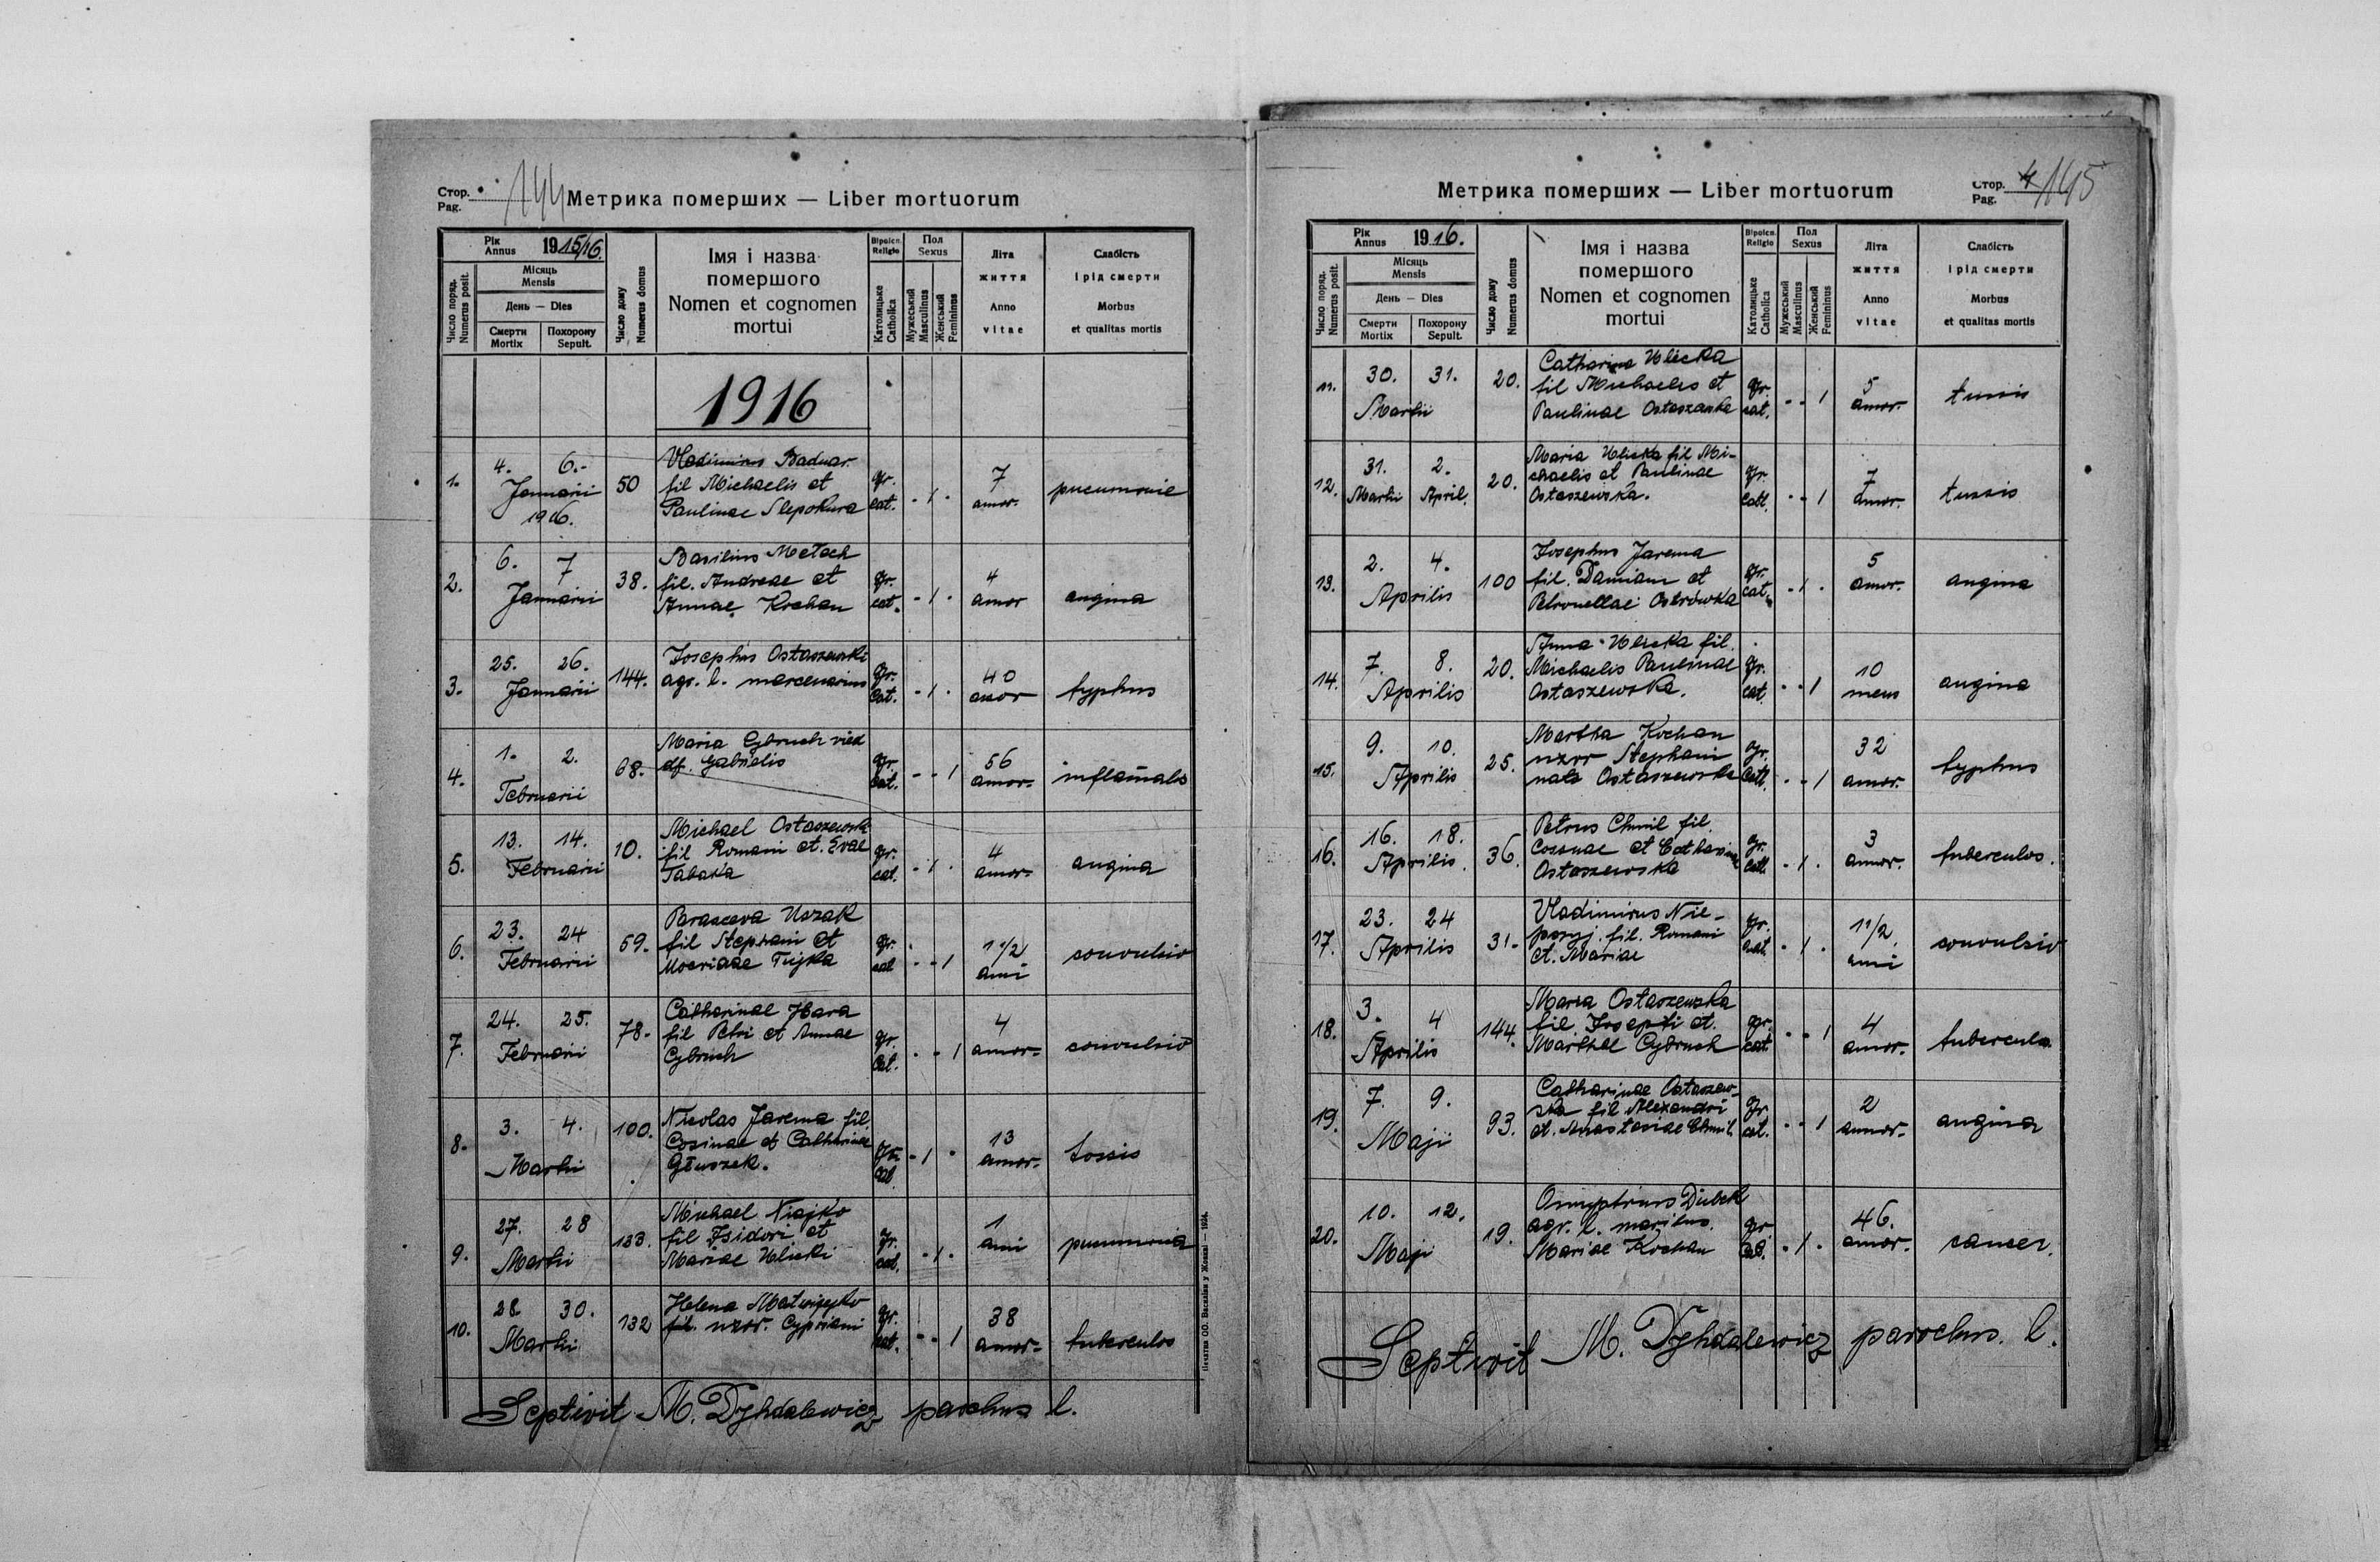 Стор.
Pag. 144 Метрика померших — Liber mortuorum
Рік
Annus 1915/16.
Місяць
Mensis
День — Dies
Смерти
Mortix
Похорону
Sepult.
Число поряд.
Numerus posit.
Число дому
Numerus domus
Імя і назва
помершого
Nomen et cognomen
mortui
Віроісп.
Religio
Католицьке
Catholica
Пол
Sexus
Мужеський
Masculinus
Женський
Femininus
Літа
життя
Anno
vitae
Слабість
і рід смерти
Morbus
et qualitas mortis
1916
1. 4. 6.- Januarii 1916. 50
Vladimirus Badnar
fil Michaelis et
Paulinae Slepokura
gr. cat. - 1 . 7 anor. pneumonie
2. 6. 7 Januarii 38.
Basilius Metech
fil. Andreae et
Annae Kochan
gr. cat. - 1 . 4 anor angina
3. 25. 26. Januarii 144.
Josephus Ostaszewski
agr. l. mercenarius
gr. cat. - 1 . 40 anor typhus
4. 1. 2. Februarii 68.
Maria Cybruch vid
df. Gabrielis
gr. cat. - - 1 56 annor- inflamatio
5. 13. 14. Februarii 10.
Michael Ostaszewski
fil Romani et. Evae
Tabaka
gr. cat. - 1 . 4 annor- angina
6. 23. 24 Februarii 69.
Parasceva Uszak
fil Stephani et
Tujka
gr. cat - - 1 1 1/2 anni convulsio
7. 24. 25. Februarii 78-
Catharinae Hara
fil Petri et Annae
Cybruch
gr. cat. - - 1 4 annor- convulsio
8. 3. 4. Martii 100.
Nicolas Jarema fil.
Cosmae et Catharinae
Głuszek.
gr. cat - 1 . 13 annor- tossis
9. 27. 28 Martii 133.
Michael Niajko
fil Isidori et
Mariae Ulicki
gr. cat. - 1 . 1 anni pneumonia
10. 28. 30. Martii 132
Helena Matwijejko
fil. uxor. Cypriani
gr. cat. - - 1 38 annor- tuberculos
Septivit M. Dyhdalewicz parochus l.
Печатня ОО. Василіян у Жовкві — 1924.
Метрика померших — Liber mortuorum Стор.
Pag. 4 145
Рік
Annus 1916.
Місяць
Mensis
День — Dies
Смерти
Mortix
Похорону
Sepult.
Число поряд.
Numerus posit.
Число дому
Numerus domus
Імя і назва
помершого
Nomen et cognomen
mortui
Віроісп.
Religio
Католицьке
Catholica
Пол
Sexus
Мужеський
Masculinus
Женський
Femininus
Літа
життя
Anno
vitae
Слабість
і рід смерти
Morbus
et qualitas mortis
11. 30. 31. Martii 20.
Catharina Ulicka
fil Michaelis et
Paulinae Ostaszewska
gr. cat. - - 1 5 annor- tussis
12. 31. 2. Martii April. 20.
Maria Ulicka fil Mi-
chaelis et Paulinae
Ostaszewska.
gr. catt. - - 1 7 annor. tussis
13. 2. 4. Aprilis 100
Josephus Jarema
fil. Damiani et
Petronellae Ostrówka
gr. cat. - 1 . 5 annor. angina
14. 7. 8. Aprilis 20.
Anna Ulicka fil.
Michaelis Paulinae
Ostaszewska.
gr. cat. - - 1 10 mens angina
15. 9. 10. Aprilis 25.
Martha Kochan
uxor Stephani
nata Ostaszewska
gr. catt. - - 1 32 annor. typhus
16. 16. 18. Aprilis. 36.
Petrus Chmil fil.
Cosmae et Catharinae
Ostaszewska
gr. catt. - 1 . 3 annor. tuberculos.
17. 23. 24 Aprilis 31-
Vladimirus Nie-
fil. Romani
et. Mariae
gr. cat. - 1 . 1 1/2 anni convulsio
18. 3. 4 Aprilis 144.
Maria Ostaszewska
fil. Josephi et.
Marthae Cybruch
gr. cat. - - 1 4 annor. tuberculo.
19. 7. 9. Maji 93.
Catharinae Ostaszew-
ska fil Alexandri
et. Anastasiae Chmil.
gr. cat. - - 1 2 annor- angina
20. 10. 12. Maji 19.
Dziubek
agr. l. maritus.
Mariae Kochan
gr. cat. - 1 . 46. annor. cancer.
Septivit M. Dyhdalewicz parochus. l.